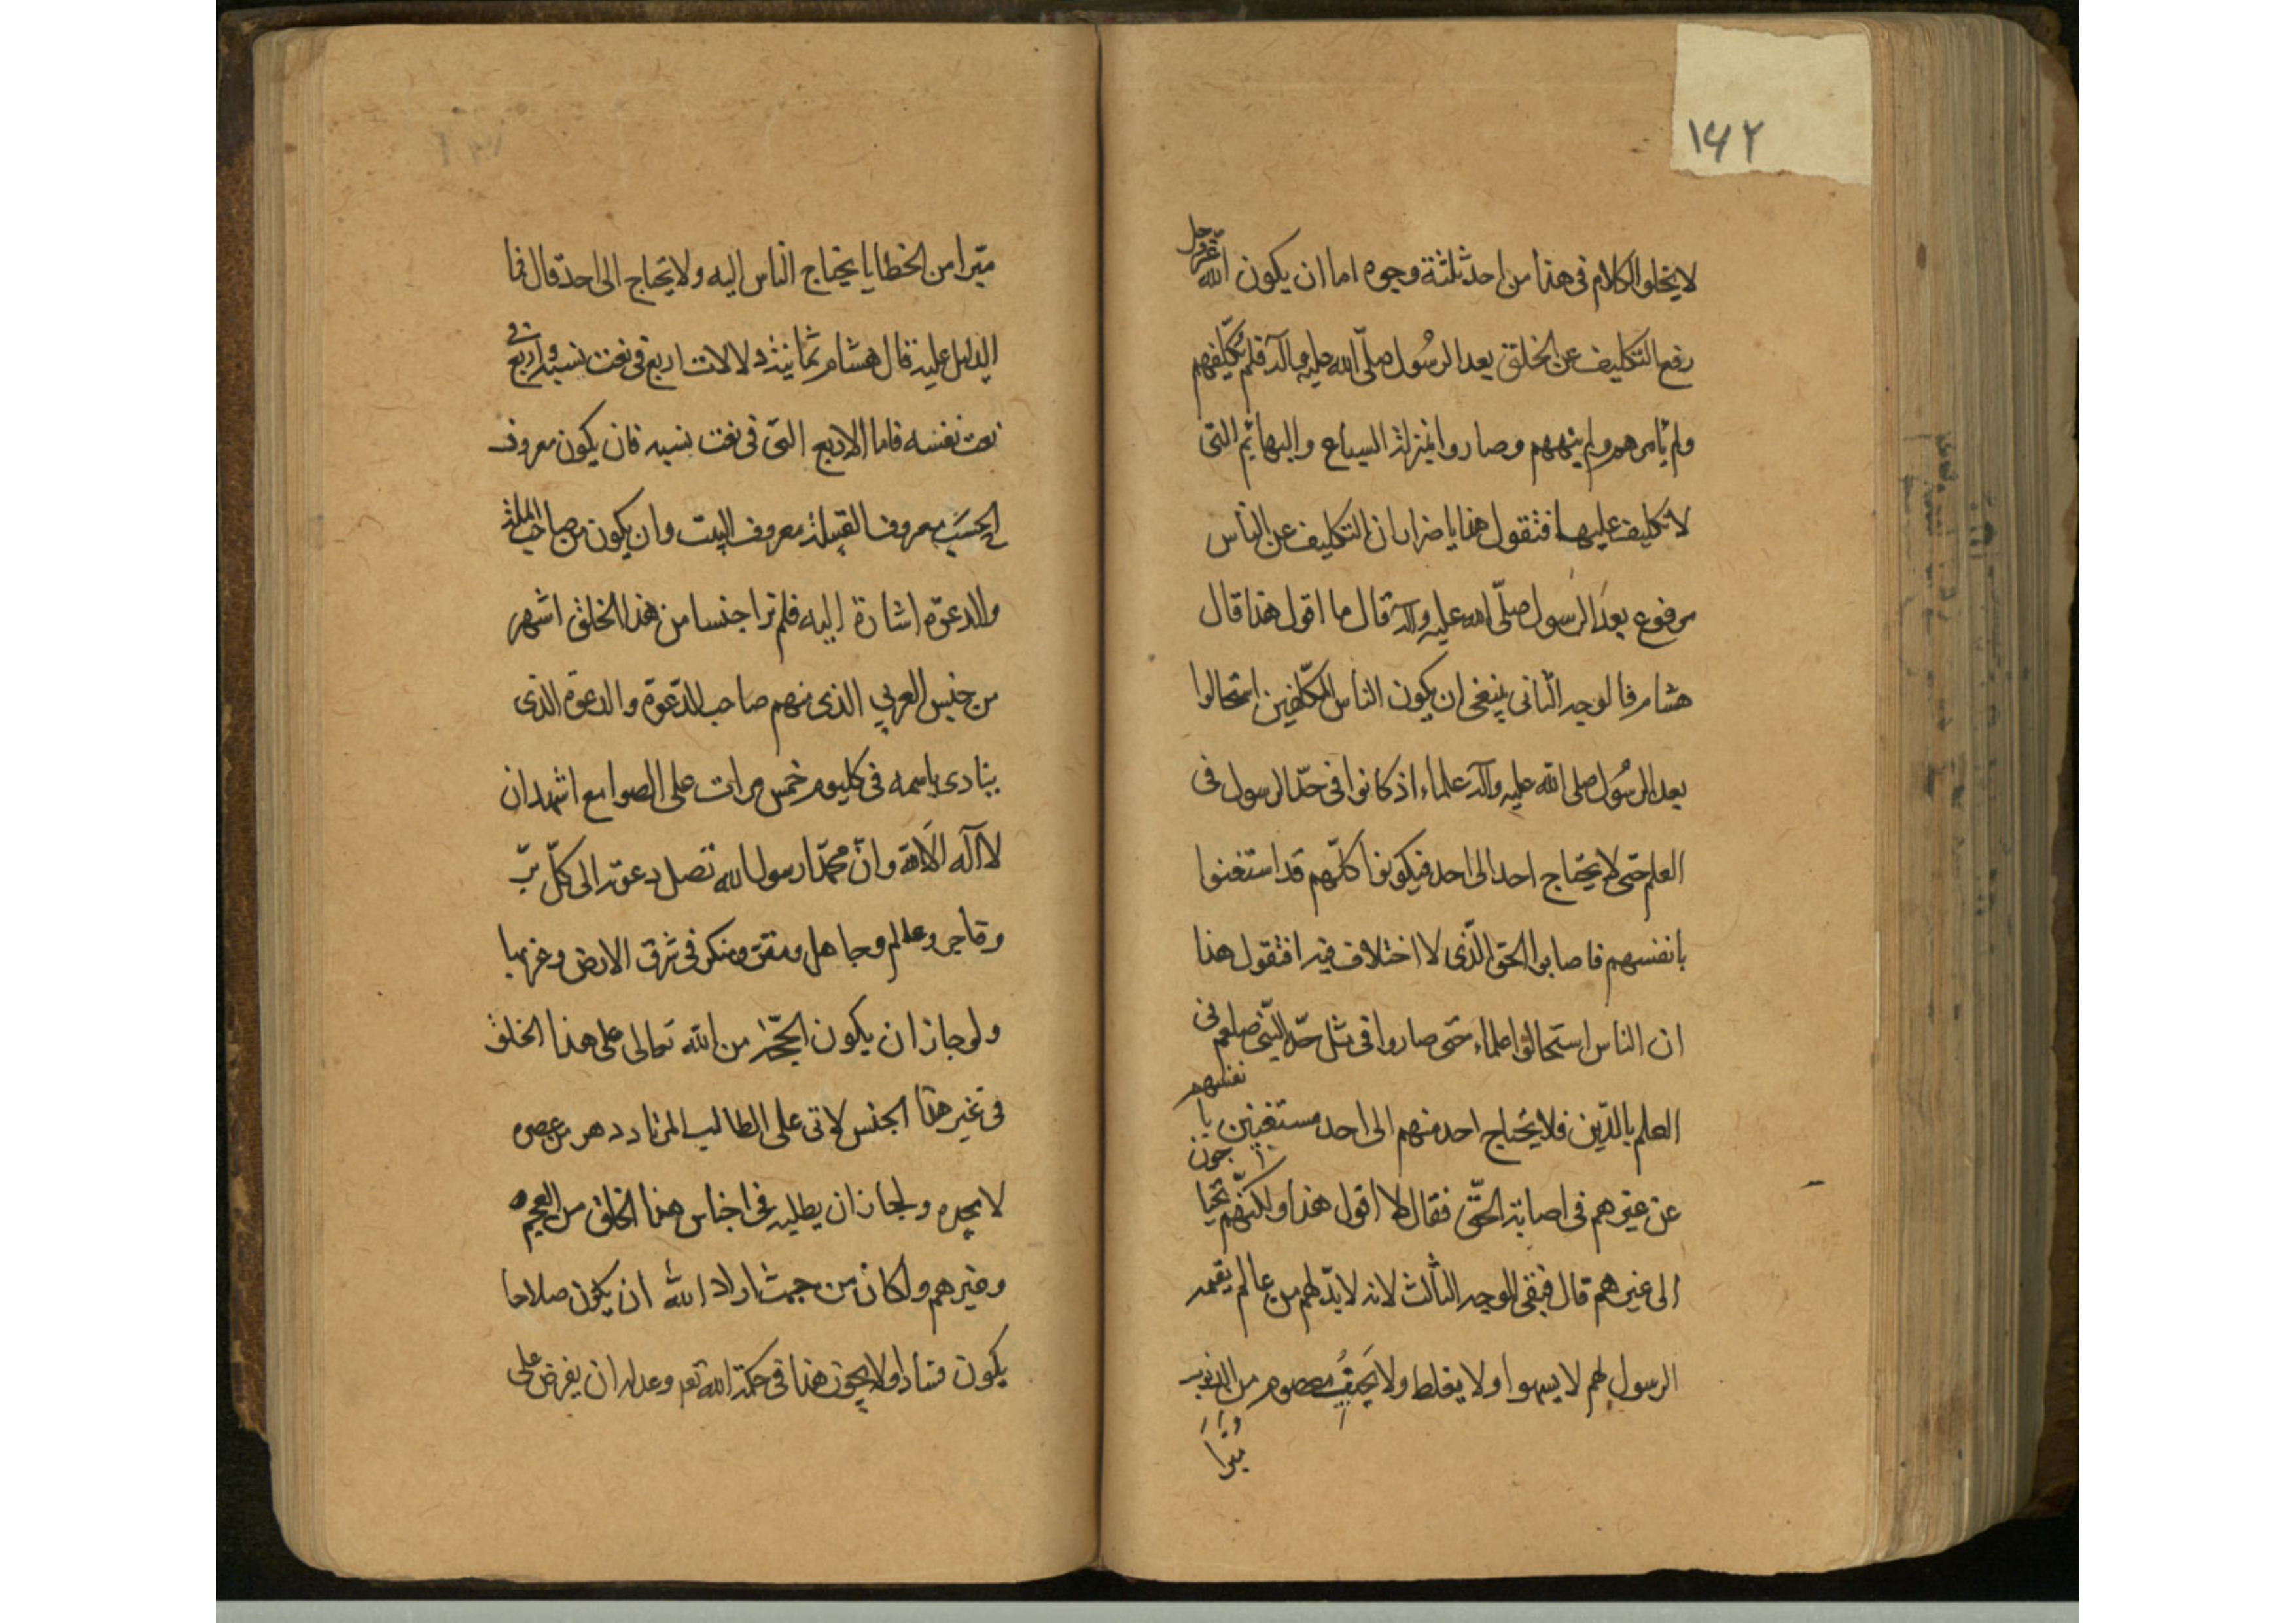 ۱۶۲
لا يخلو الكلام فى هذا من احد ثلثة وجوه اما ان يكون الله عزوجل
رفع التكليف عن الخلق بعد الرسُول صلّى الله عليه وآله فلم يكلّفهم
ولم يأمرهم ولم ينههم وصاروا بمنزلة السباع والبهائم التى
لا تكليف عليها فتقول هذا يا ضرار ان التكليف عن الناس
مرفوع بعدَ الرسَول صلّى الله عليه وآله قال ما اقول هذا قال
هشام فالوجه الثانى ينبغى ان يكون الناس المكلّفين استحالوا
بعد الرسُول صلى الله عليه وآله علماء اذ كانوا فى حدّ الرسول فى
العلم حتى لا يحتاج احد الى احد فيكونوا كلّهم قد استغنوا
بانفسهم فاصابوا الحق الّذى لا اختلاف فيه افتقول هذا
ان الناس استحالوا علماء حتى صاروا فى مثل حدّ النّبى صلعم فى
العلم بالدّين فلا يحتاج احد منهم الى احد مستغنين بانفسهم
عن غيرهم فى اصابة الحقّ فقال لا اقول هذا ولكنّهم يحتاجون
الى غيرهم قال فبقى الوجه الثالث لانه لا بدّ لهم من عالم يقيمه
الرسول لهم لا يسهوا ولا يغلط ولا يَحيفُ معصوم من الذنوب
مبرا
مبّرا من الخطايا يحتاج الناس اليه ولا يحتاج الى احد قال فما
الدليل عليه قال هشام ثمانية دلالات اربع فى نعت نسبه واربع فى
نعت نفسه فاما الاربع التى فى نعت نسبه فان يكون معروف
الحسَب معروف القبيلة معروف البيت وان يكون من صاحب الملة
والدعوة اشارة اليه فلم نرا جنسا من هذا الخلق اشهر
من جنس العرب الذى منهم صاحب الملّة والدعوة الذى
ينادى باسمه فى كليوم خمس مرات على الصوامع اشهد ان
لا اله الّا الله وانّ محمّدا رسول الله تصل دعوته الى كلّ برّ
وفاجر وعالم وجاهل ومقرّ ومنكر فى شرق الارض وغربها
ولو جاز ان يكون الحجّة من الله تعالى على هذا الخلق
فى غير هذا الجنس لاتى على الطالب المرتاد دهر من عصره
لا يجده ولجاز ان يطلبه فى اجناس هذا الخلق من العجم
وغيرهم ولكان من حيث اراد الله ان يكون صلاحا
يكون فسادا ولا يجوز هذا فى حكمة الله تع وعدله ان يفرض على